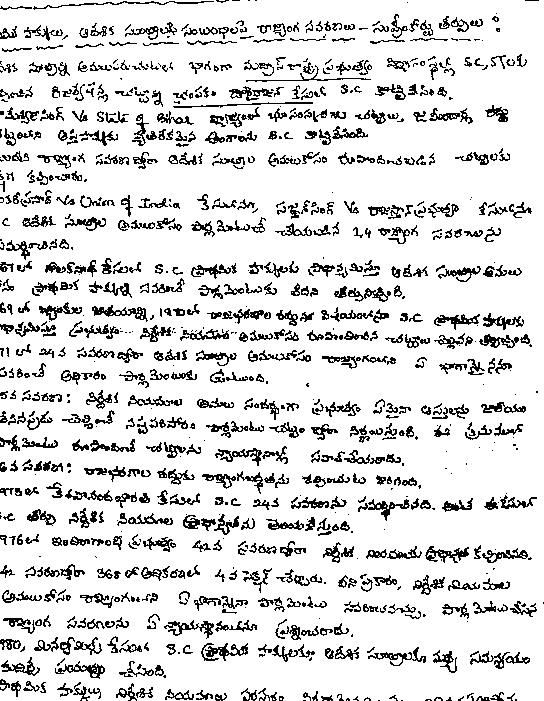 హక్కులు, ఆదేశిక సూత్రాలకు సంబంధాలపై రాజ్యాంగ సవరణలు - సుప్రీంకోర్టు తీర్పులు :
సూత్రాల్ని అమలుపరచుటలో భాగంగా మద్రాస్ రాష్ట్ర ప్రభుత్వం విద్యాసంస్థల్లో SC, STలకు
రిజర్వేషన్ల చట్టాన్ని చంపకం దొరైరాజన్ కేసులో S.C కొట్టివేసింది.
Vs State of Bihar వ్యాజ్యంలో భూసంస్కరణ చట్టాలు, జమీందార్ల రద్దు
ఆస్తిహక్కుకు వ్యతిరేకమైన అంశాలను S.C కొట్టివేసింది.
రాజ్యాంగ సవరణ ద్వారా ఆదేశిక సూత్రాల అమలుకోసం రూపొందించబడిన చట్టాలకు
కల్పించారు.
Vs Union of India కేసులోనూ, సజ్జన్‌సింగ్ Vs రాజస్థాన్ ప్రభుత్వం కేసులోనూ
ఆదేశిక సూత్రాల అమలుకోసం పార్లమెంటుచే చేయబడిన 1,4 రాజ్యాంగ సవరణలను
సమర్థించినది.
గోలక్‌నాథ్ కేసులో S.C ప్రాథమిక హక్కులకు ప్రాధాన్యమిస్తూ ఆదేశిక సూత్రాల అమలు
ప్రాథమిక హక్కుల్ని సవరించే పార్లమెంటుకు లేదని తీర్పునిచ్చింది.
69 లో బ్యాంకుల జాతీయాన్ని, 1970లో రాజభరణాల రద్దును విషయంలోనూ S.C ప్రాథమిక హక్కులకు
ప్రభుత్వం నిర్దేశిక నియమాల అమలుకోసం రూపొందించిన చట్టాలు చెల్లవని తీర్పిచ్చింది.
71 లో 24వ సవరణద్వారా ఆదేశిక సూత్రాల అమలుకోసం రాజ్యాంగంలోని ఏ భాగాన్నైనా
సవరించే అధికారం పార్లమెంటుకు ఉంటుంది.
సవరణ : నిర్దేశిక నియమాల అమలు సందర్భంగా ప్రభుత్వం ఏమైనా ఆస్తులను జాతీయం
చేసినప్పుడు చెల్లించే నష్టపరిహారం పార్లమెంటు చట్టం ద్వారా నిర్ణయిస్తుంది. ఈ క్రమములో
పార్లమెంటు రూపొందించే చట్టాలను న్యాయస్థానాల్లో సవాల్ చేయరాదు.
6వ సవరణ : రాజభరణాల రద్దుకు రాజ్యాంగబద్ధతను కల్పించుట జరిగింది.
1973లో కేశవానంద భారతి కేసులో S.C 24వ సవరణను సమర్థించినది. అంటే ఈ కేసులో
S.C తీర్పు నిర్దేశిక నియమాల ప్రాధాన్యతను తెలియచేస్తుంది.
1976లో ఇందిరాగాంధీ ప్రభుత్వం 42వ సవరణద్వారా నిర్దేశిక నియమాలకు ప్రాధాన్యత కల్పించినది.
42 సవరణద్వారా 368 లో అధికరణలో 4వ సెక్షన్ చేర్చారు. దీని ప్రకారం, నిర్దేశిక నియమాల
అమలుకోసం రాజ్యాంగంలోని ఏ భాగాన్నైనా పార్లమెంటు సవరించవచ్చు. పార్లమెంటు చేసిన
రాజ్యాంగ సవరణలను ఏ న్యాయస్థానంలోనూ ప్రశ్నించరాదు.
1980, మినర్వామిల్స్ కేసులో S.C ప్రాథమిక హక్కులకూ, ఆదేశిక సూత్రాలకూ మధ్య సమన్వయం
ప్రయత్నం చేసింది.
ప్రాథమిక హక్కులు, నిర్దేశిక నియమాలు పరస్పరం